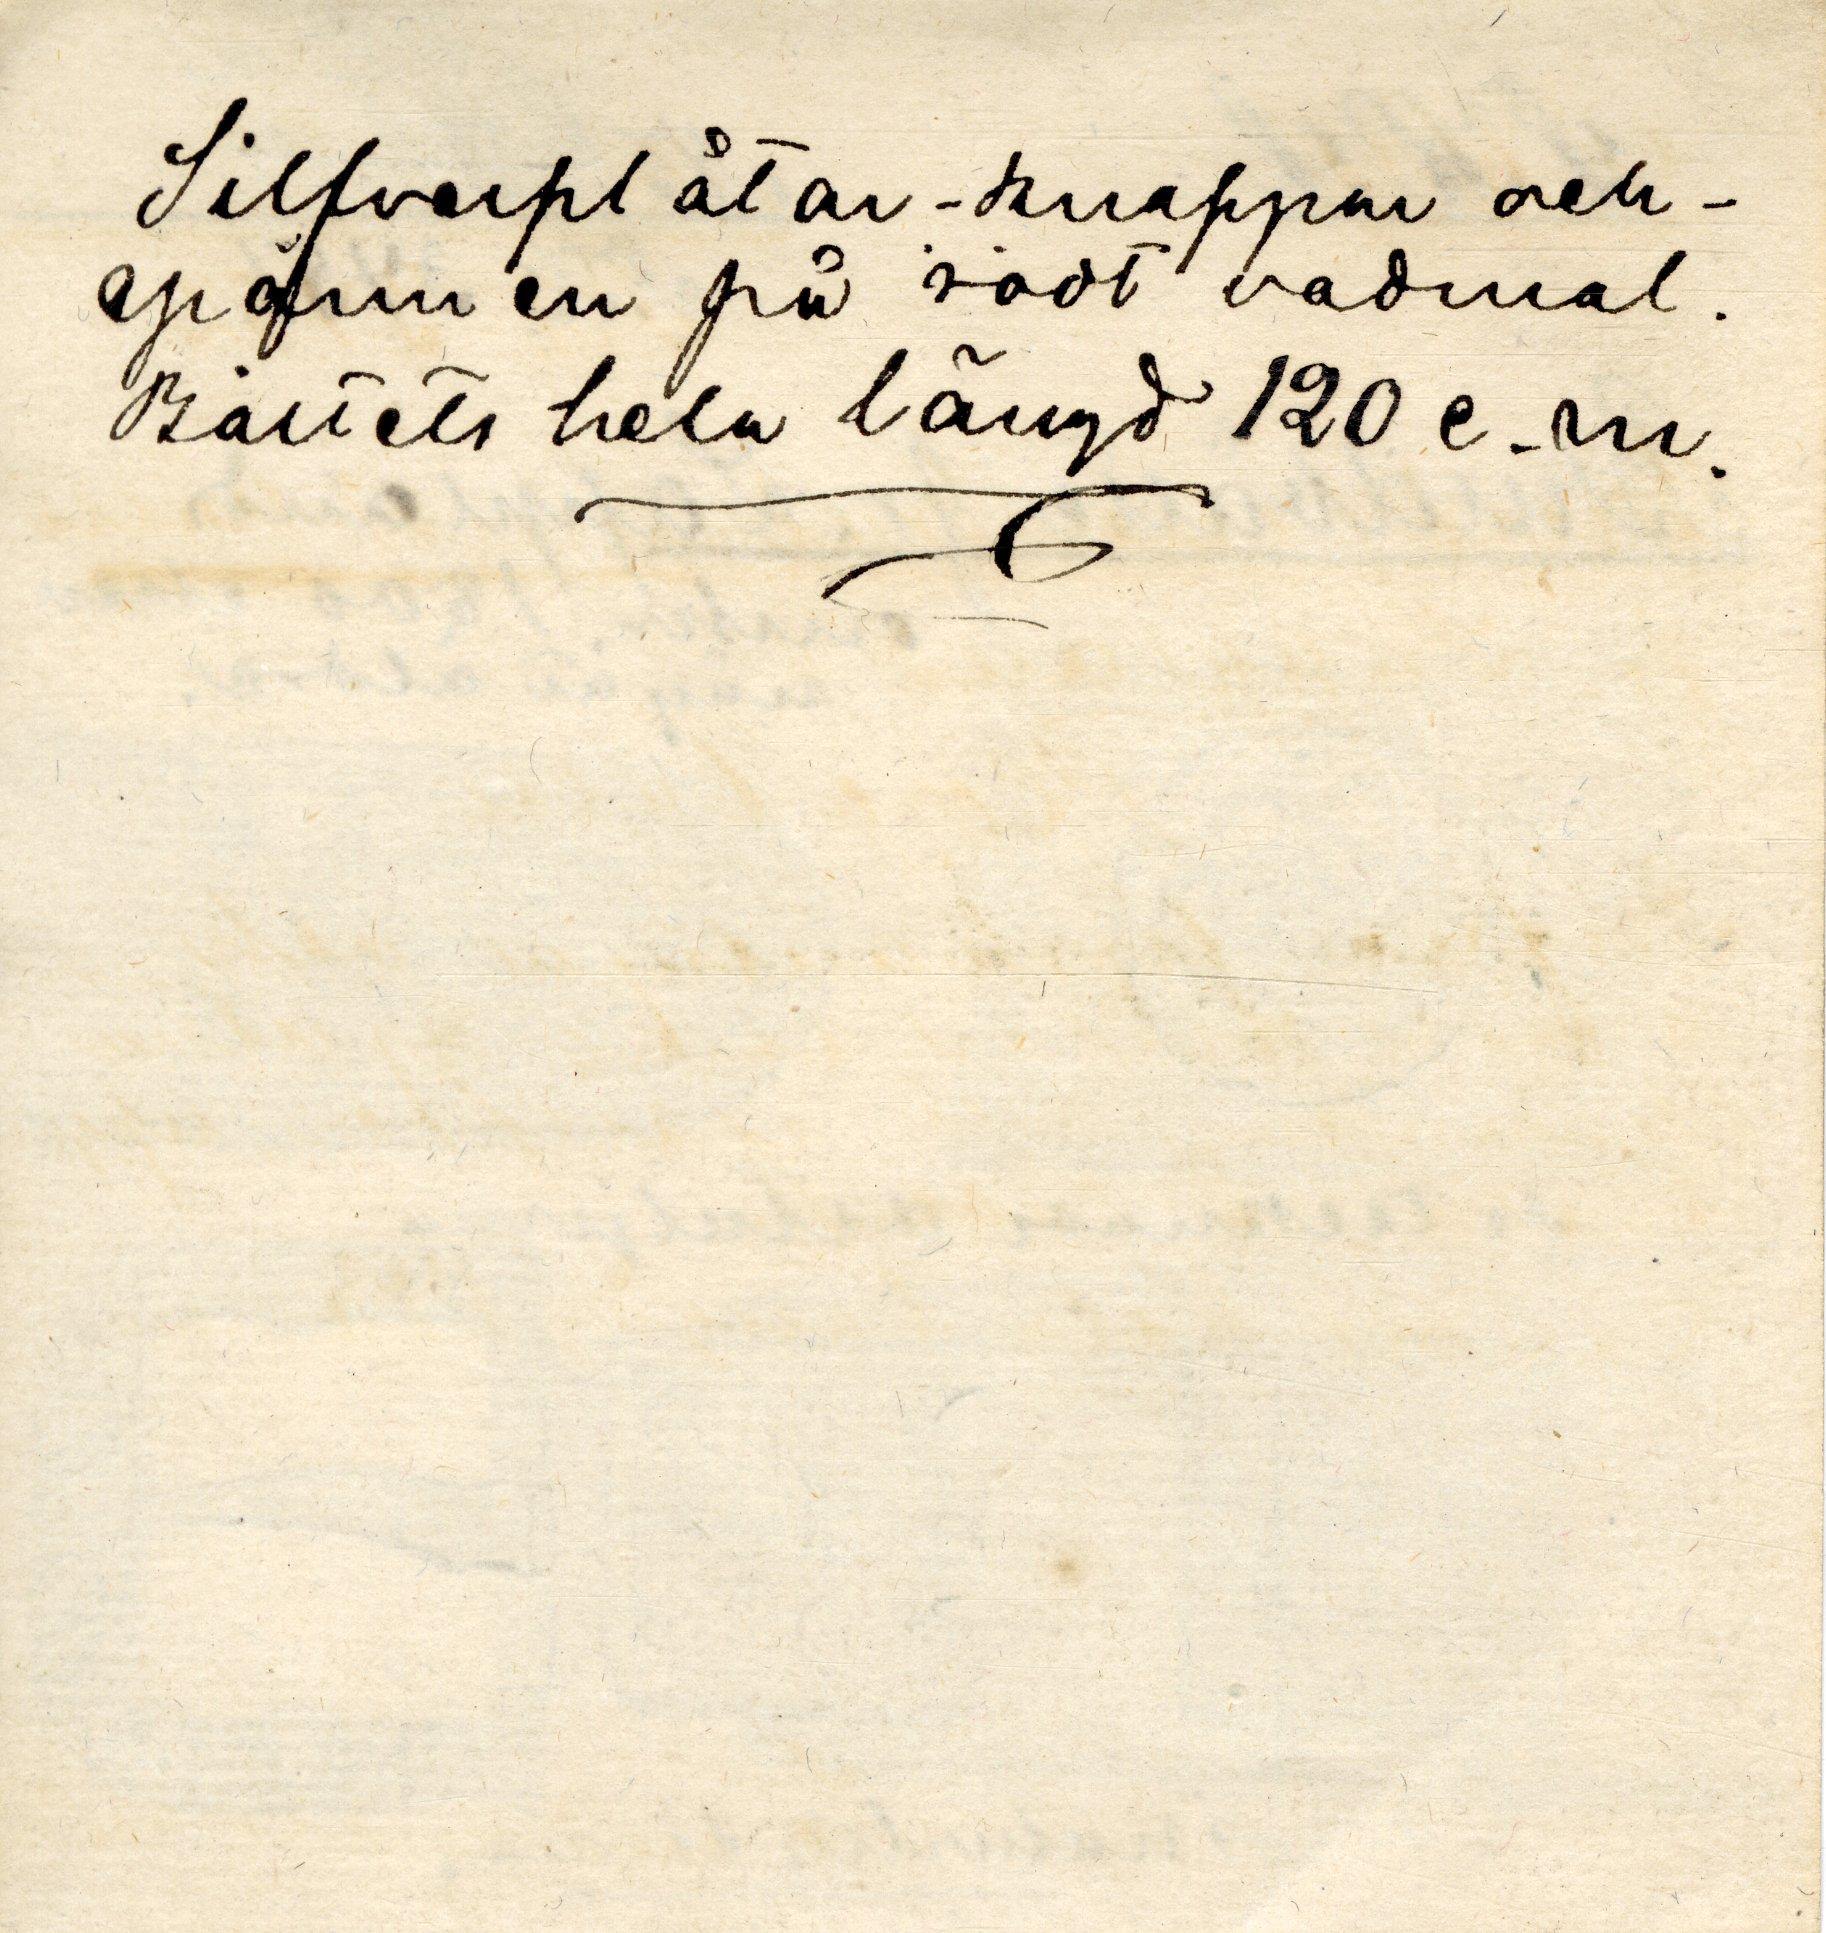 Silfverplåtar-knappar och-
spännen på rödt vadmal.
Bältets hela längd 120 c-m.